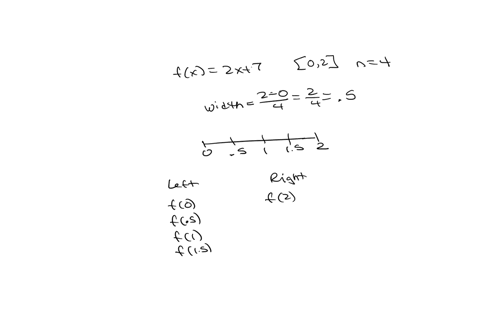 f(x) = 2x+7 [0,2] n=4
width = \frac{2-0}{4} = \frac{2}{4} = .5
0 .5 1 1.5 2
Left Right
f(0) f(2)
f(.5)
f(1)
f(1.5)